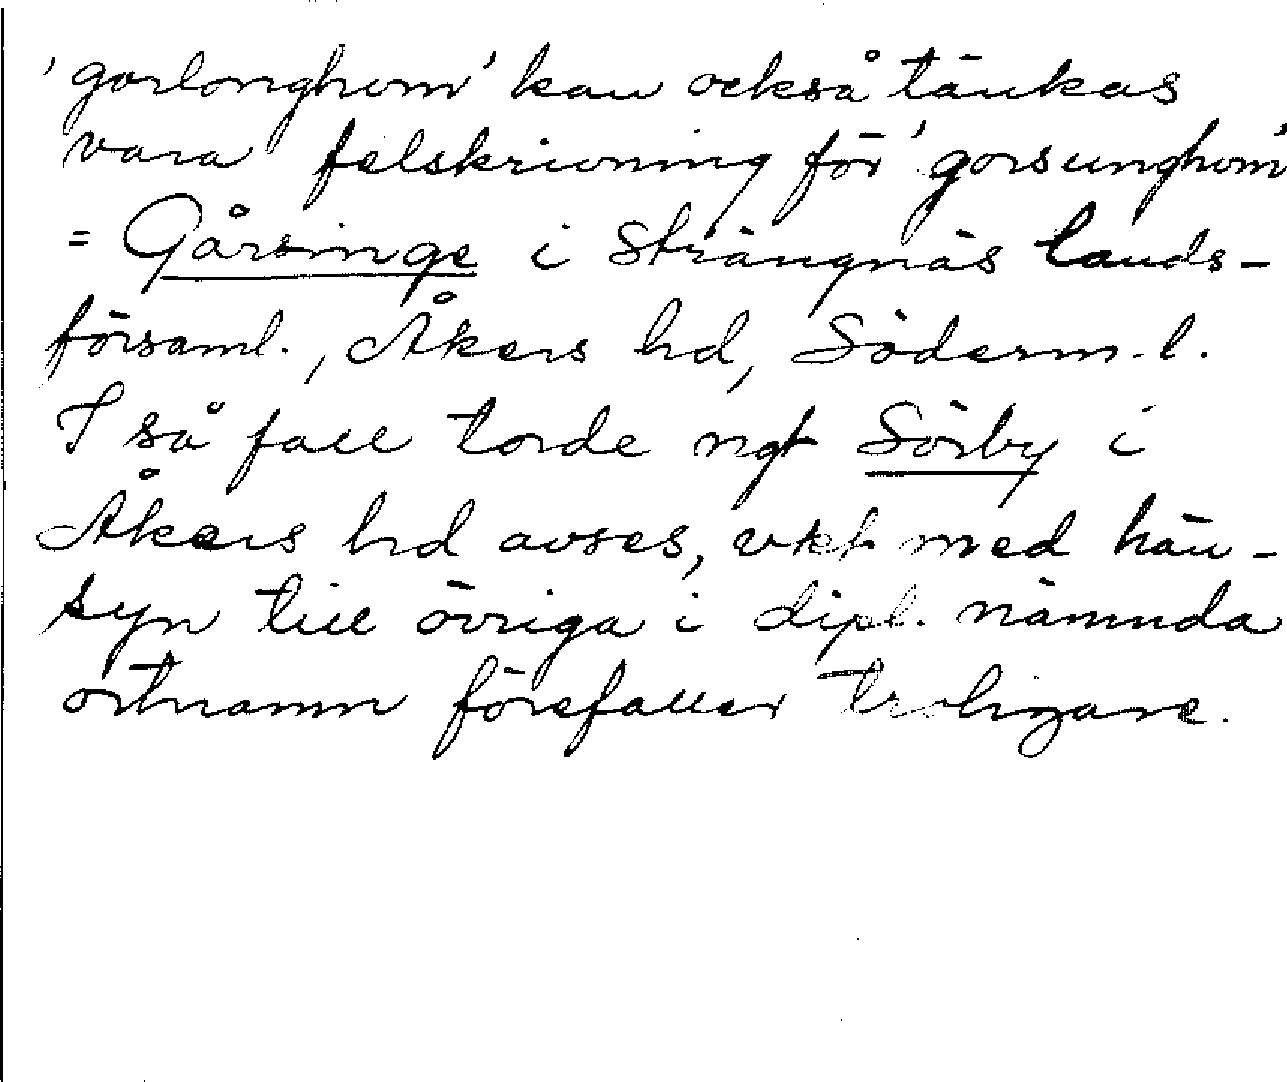 'gorlonghem' kan också tänkas
vara felskrivning för 'gorsunghem'
= Gårsinge i Strängnäs lands-
församl., Åkers hd, Söderm. l.
I så fall torde ngt Sörby i
Åkers hd avses, vket med hän-
syn till övriga i dipl. nämnda
ortnamn förefaller troligare.